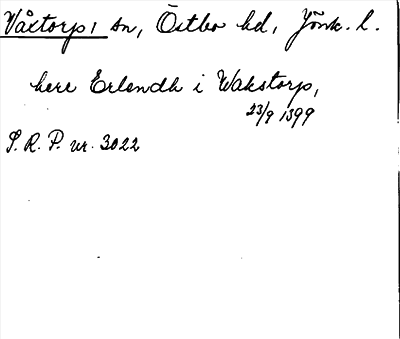 Våxtorps sn, Östbo hd, Jönk. l.
here Erlendh i Wakstorp,
23/9 1399
S. R. P. nr. 3022